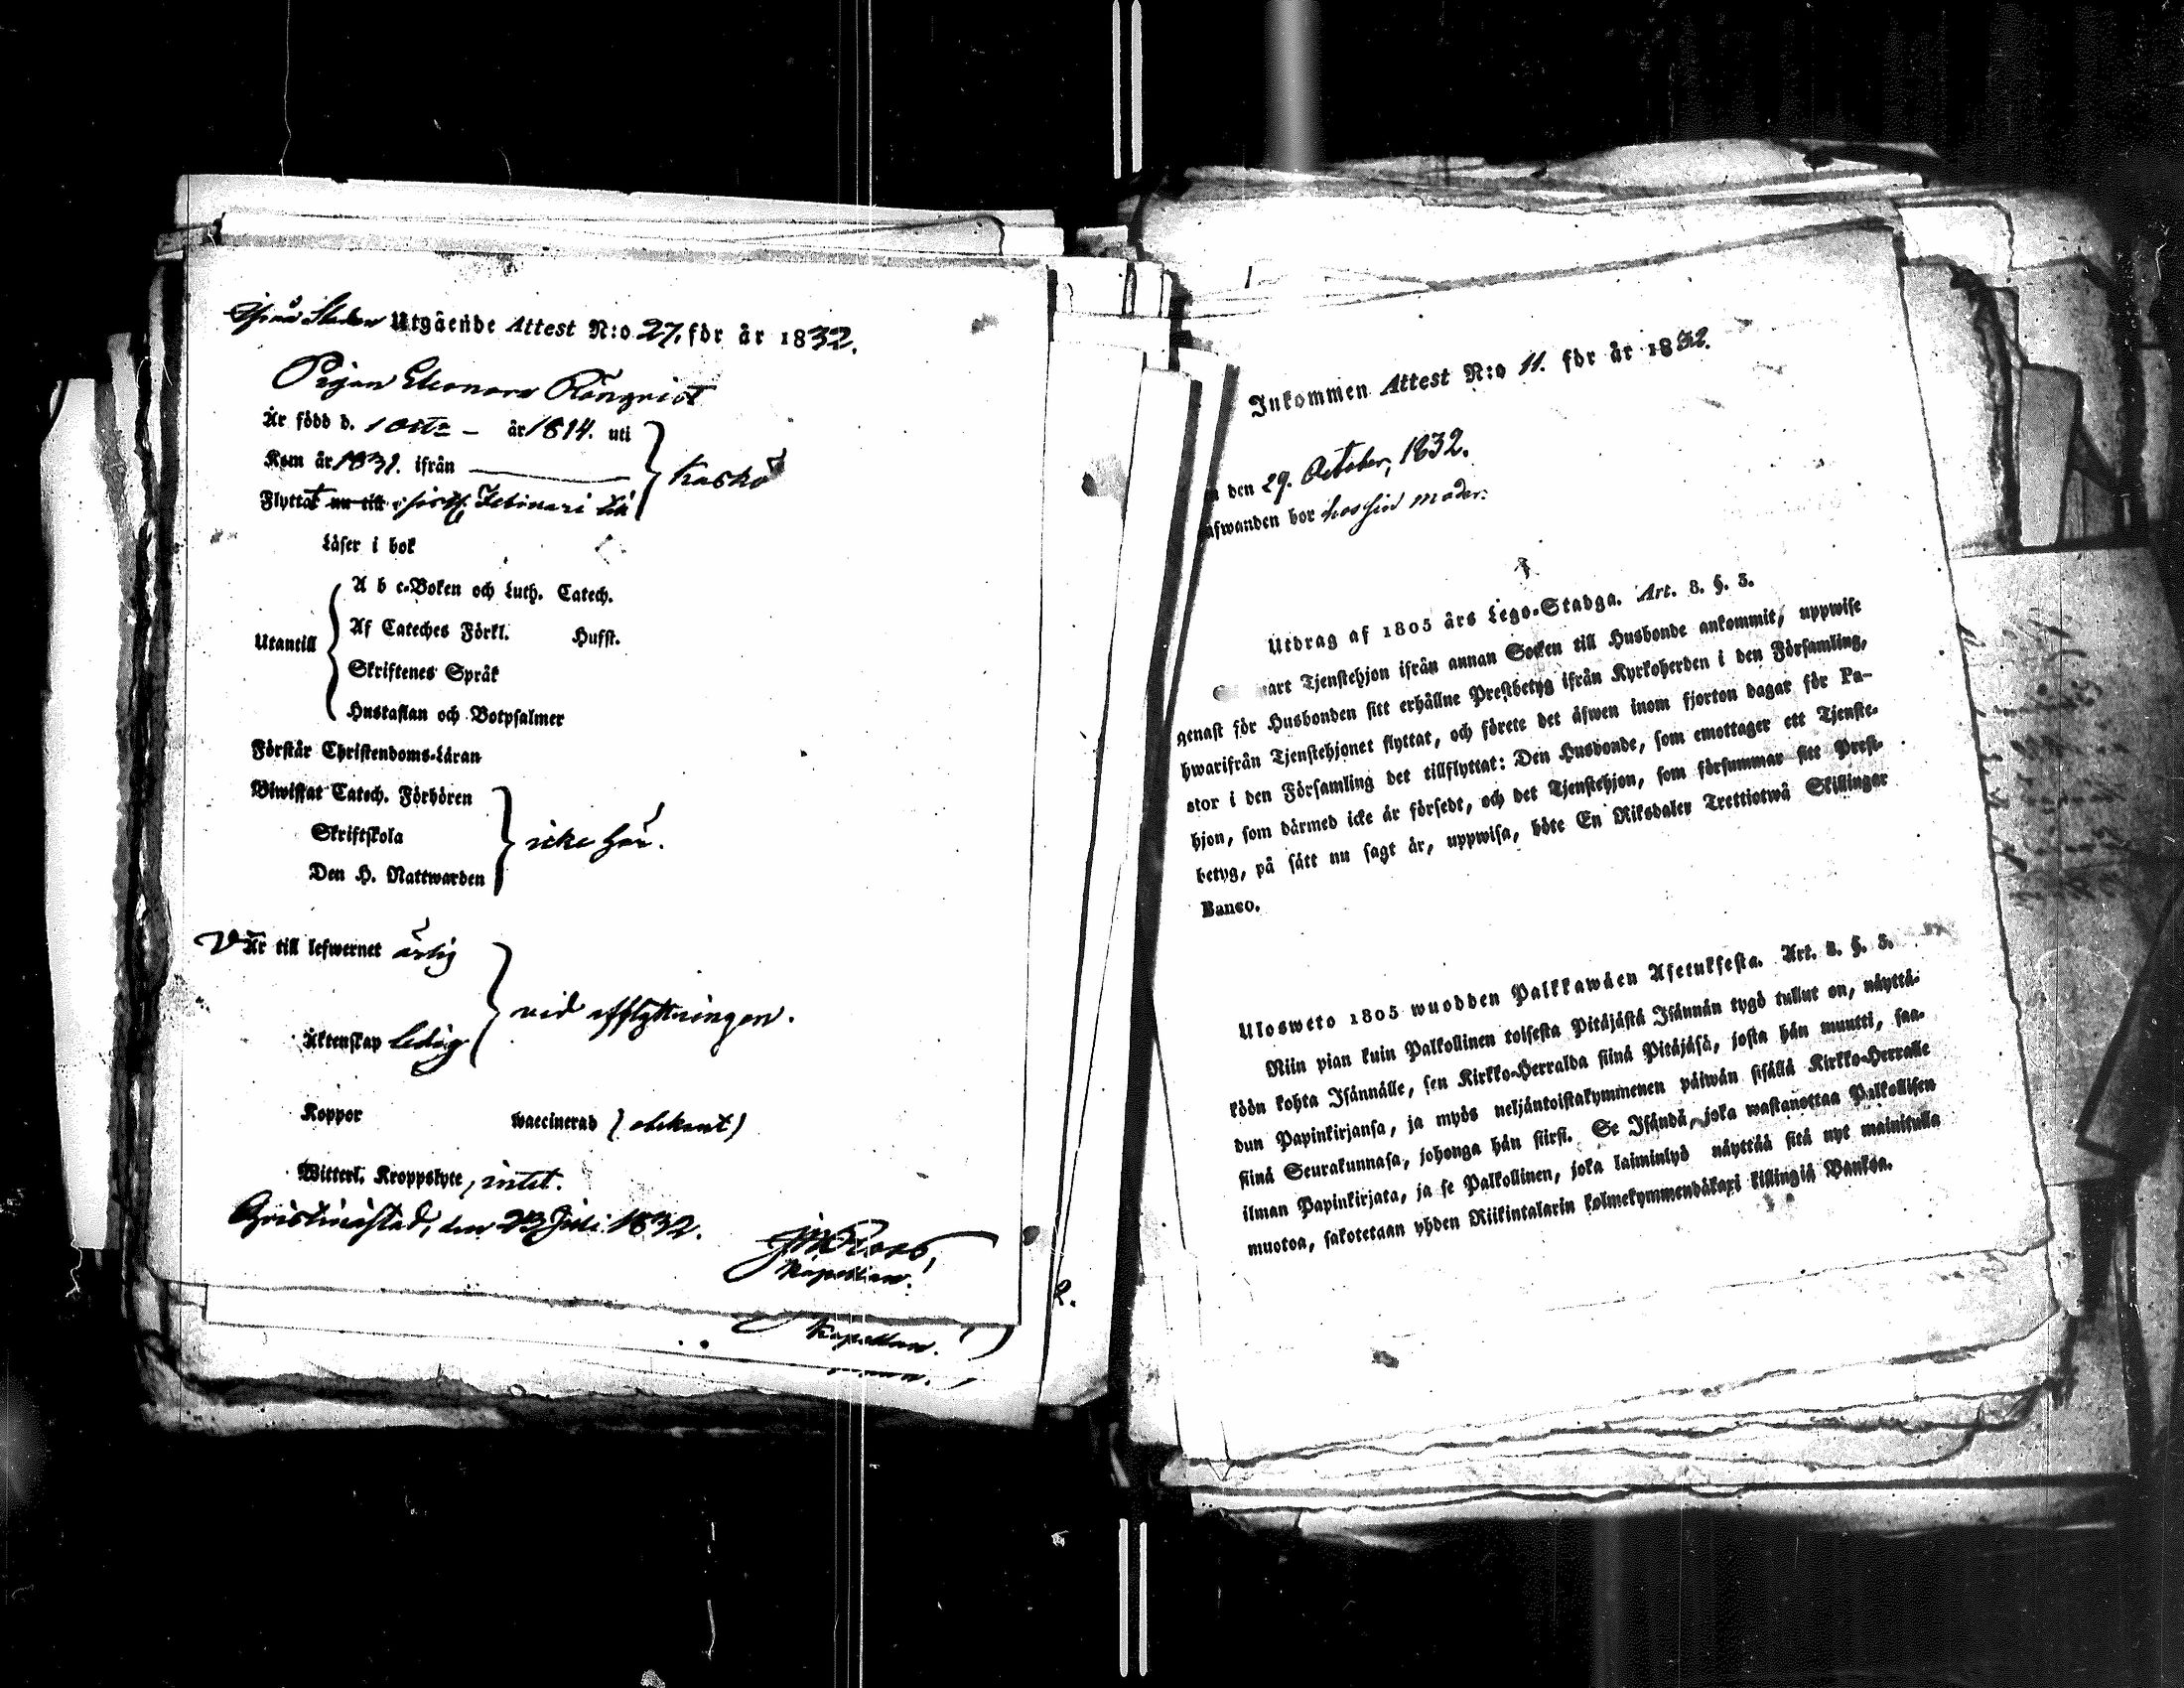 ifrån Staden Utgående Attest N:o 27. för år 1832.
Pigan Eleonora Rönqvist
Är född d. 1 Octr – år 1814. uti
Kom år 1831. ifrån
Kaskö
Flyttat nu till sistl. Februari till
Läser i bok
Utantill
A b c-Boken och Luth. Catech.
Af Cateches Förkl. Hufst.
Skriftenes Språk
Hustaflan och Botpsalmer
Förstår Christendoms-Läran
Biwistat Catech. Förhören
Skriftskola
icke här.
Den H. Nattwarden
Är till lefwernet ärlig
vid afflyttningen.
Äktenskap ledig
Koppor waccinerad (obekant)
Witterl. Kroppslyte, intet.
Christinestad, den 23 Juli 1832.
Roos,
Kapellan.
Kapellan.
2.
Inkommen Attest N:o 11. för år 1832.
den 29. October, 1832.
bor hos sin moder.
Utdrag af 1805 års Lego-Stadga. Art. 8. §. 3.
Tjenstehjon ifrån annan Socken till Husbonde ankommit, uppwise
genast för Husbonden sitt erhållne Prestbetyg ifrån Kyrkoherden i den Församling,
hwarifrån Tjenstehjonet flyttat, och förete det äfwen inom fjorton dagar för Pa-
stor i den Församling det tillflyttat: Den Husbonde, som emottager ett Tjenste-
hjon, som därmed icke är försedt, och det Tjenstehjon, som försummar sitt Prest-
betyg, på sätt nu sagt är, uppwisa, böte En Riksdaler Trettiotwå Skillingar
Banco.
Ulosweto 1805 wuodden Palkkawäen Asetuksesta. Art. 8. §. 3.
Niin pian kuin Palkollinen toisesta Pitäjästä Isännän tygö tullut on, näyttä-
köön kohta Isännälle, sen Kirkko-Herralda siinä Pitäjäsä, josta hän muutti, saa-
dun Papinkirjansa, ja myös neljäntoistakymmenen päiwän sisällä Kirkko-Herralle
siinä Seurakunnasa, johonga hän siirsi. Se Isändä, joka wastanottaa Palkollisen
ilman Papinkirjata, ja se Palkollinen, joka laiminlyö näyttää sitä nyt mainitulla
muotoa, sakotetaan yhden Riikintalarin kolmekymmendäkaxi killingiä Bankoa.